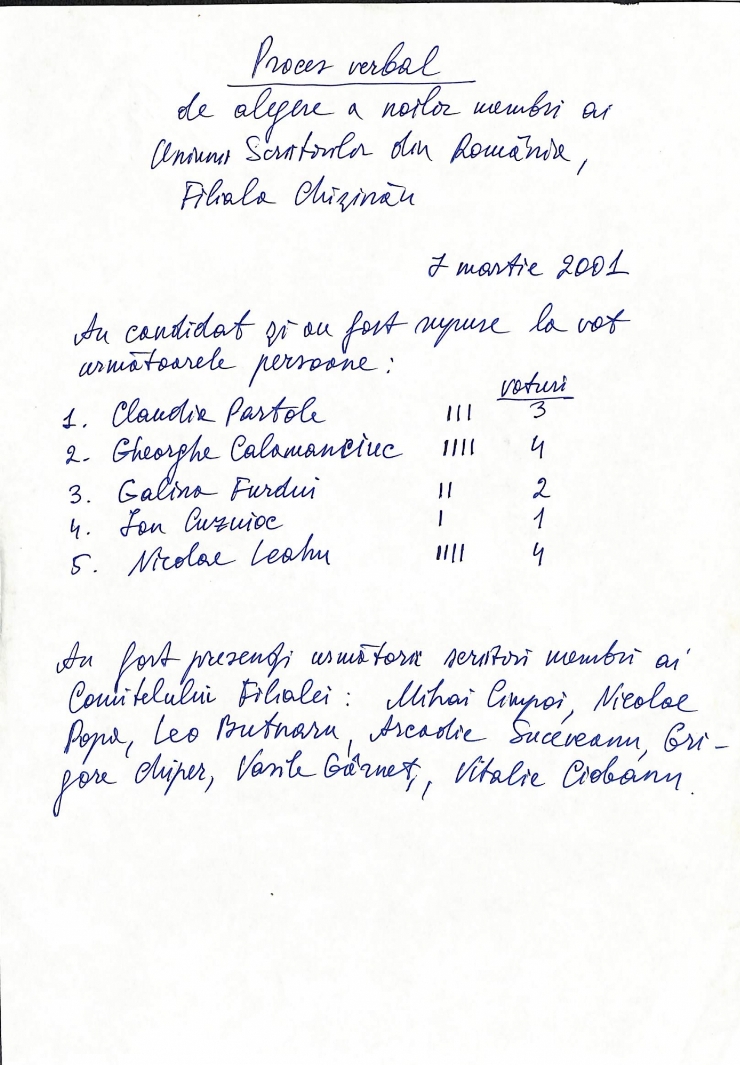 Proces verbal
de alegere a noilor membri ai
Uniunii Scriitorilor din România,
Filiala Chișinău
7 martie 2001
Au candidat și au fost supuse la vot
următoarele persoane:
voturi
1. Claudia Partole III 3
2. Gheorghe Calamanciuc IIII 4
3. Galina Furdui II 2
4. Ion Cuzuioc I 1
5. Nicolae Leahu IIII 4
Au fost prezenți următorii scriitori membri ai
Comitetului Filialei: Mihai Cimpoi, Nicolae
Popa, Leo Butnaru, Arcadie Suceveanu, Gri-
gore Chiper, Vasile Gârneț, Vitalie Ciobanu.